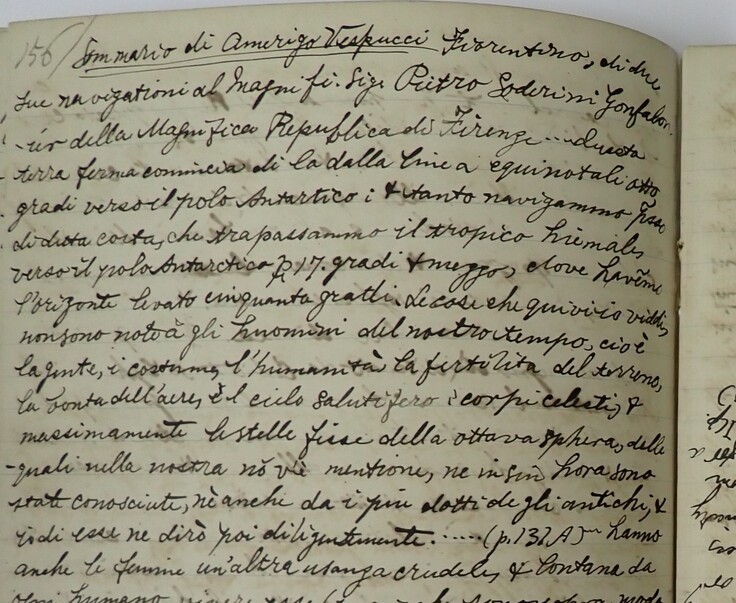 156/ Sommario di Amerigo Vespucci Fiorentino, di due
sue navigationi al Magnifi. Sigr Pietro Soderini Gonfalon-
-ier della Magnifica Republica di Firenze ... Questa
terra ferma comincia di la dalla linea equinotiali otto
gradi verso il polo Antartico i & tanto navigammo p̄sso
di detta costa, che trapassammo il tropico hiemales
verso il polo Antarctico p̱ 17. gradi & mezzo, dove havēme
l'orizonte levato cinquanta gradi. Le cose che quivi io viddi,
non sono note à gli huomini del nostro tempo, cio è
la gente, i costumi, l'humanità la fertilita del terreno,
la bonta dell'aere, è l cielo salutifero i corpi celesti, &
massimamente le stelle fisse della ottava sphera, delle
-quali nella nostra nō v'è mentione, ne in sin hora sono
state conosciute, nè anche da i piu dotti de gli antichi, &
io di esse ne dirò poi diligentemente. ..... (p. 131, A) hanno
anche le femine un'altra usanza crudele, & lontana da
humano